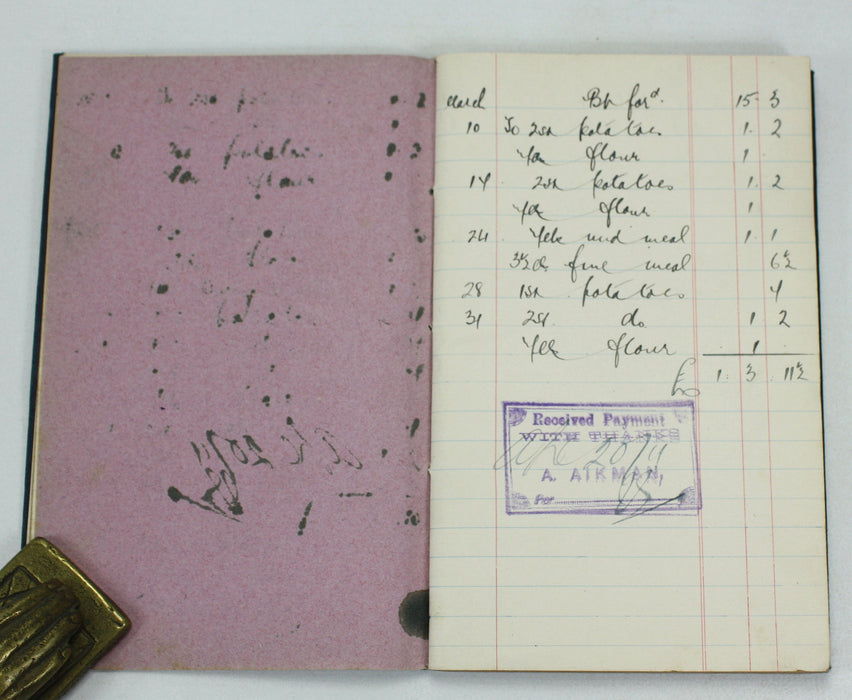 March Bt ford. 15 3
10 To 2st potatoes 1. 2
flour 1
14 2st potatoes 1. 2
flour 1
24 mid meal 1. 1
fine meal 6½
28 1st potatoes 4
31 2st. do 1 2
flour 1
£ 1. 3. 11½
Received Payment
WITH THANKS
Apl 20/11
A. AIKMAN,
Per